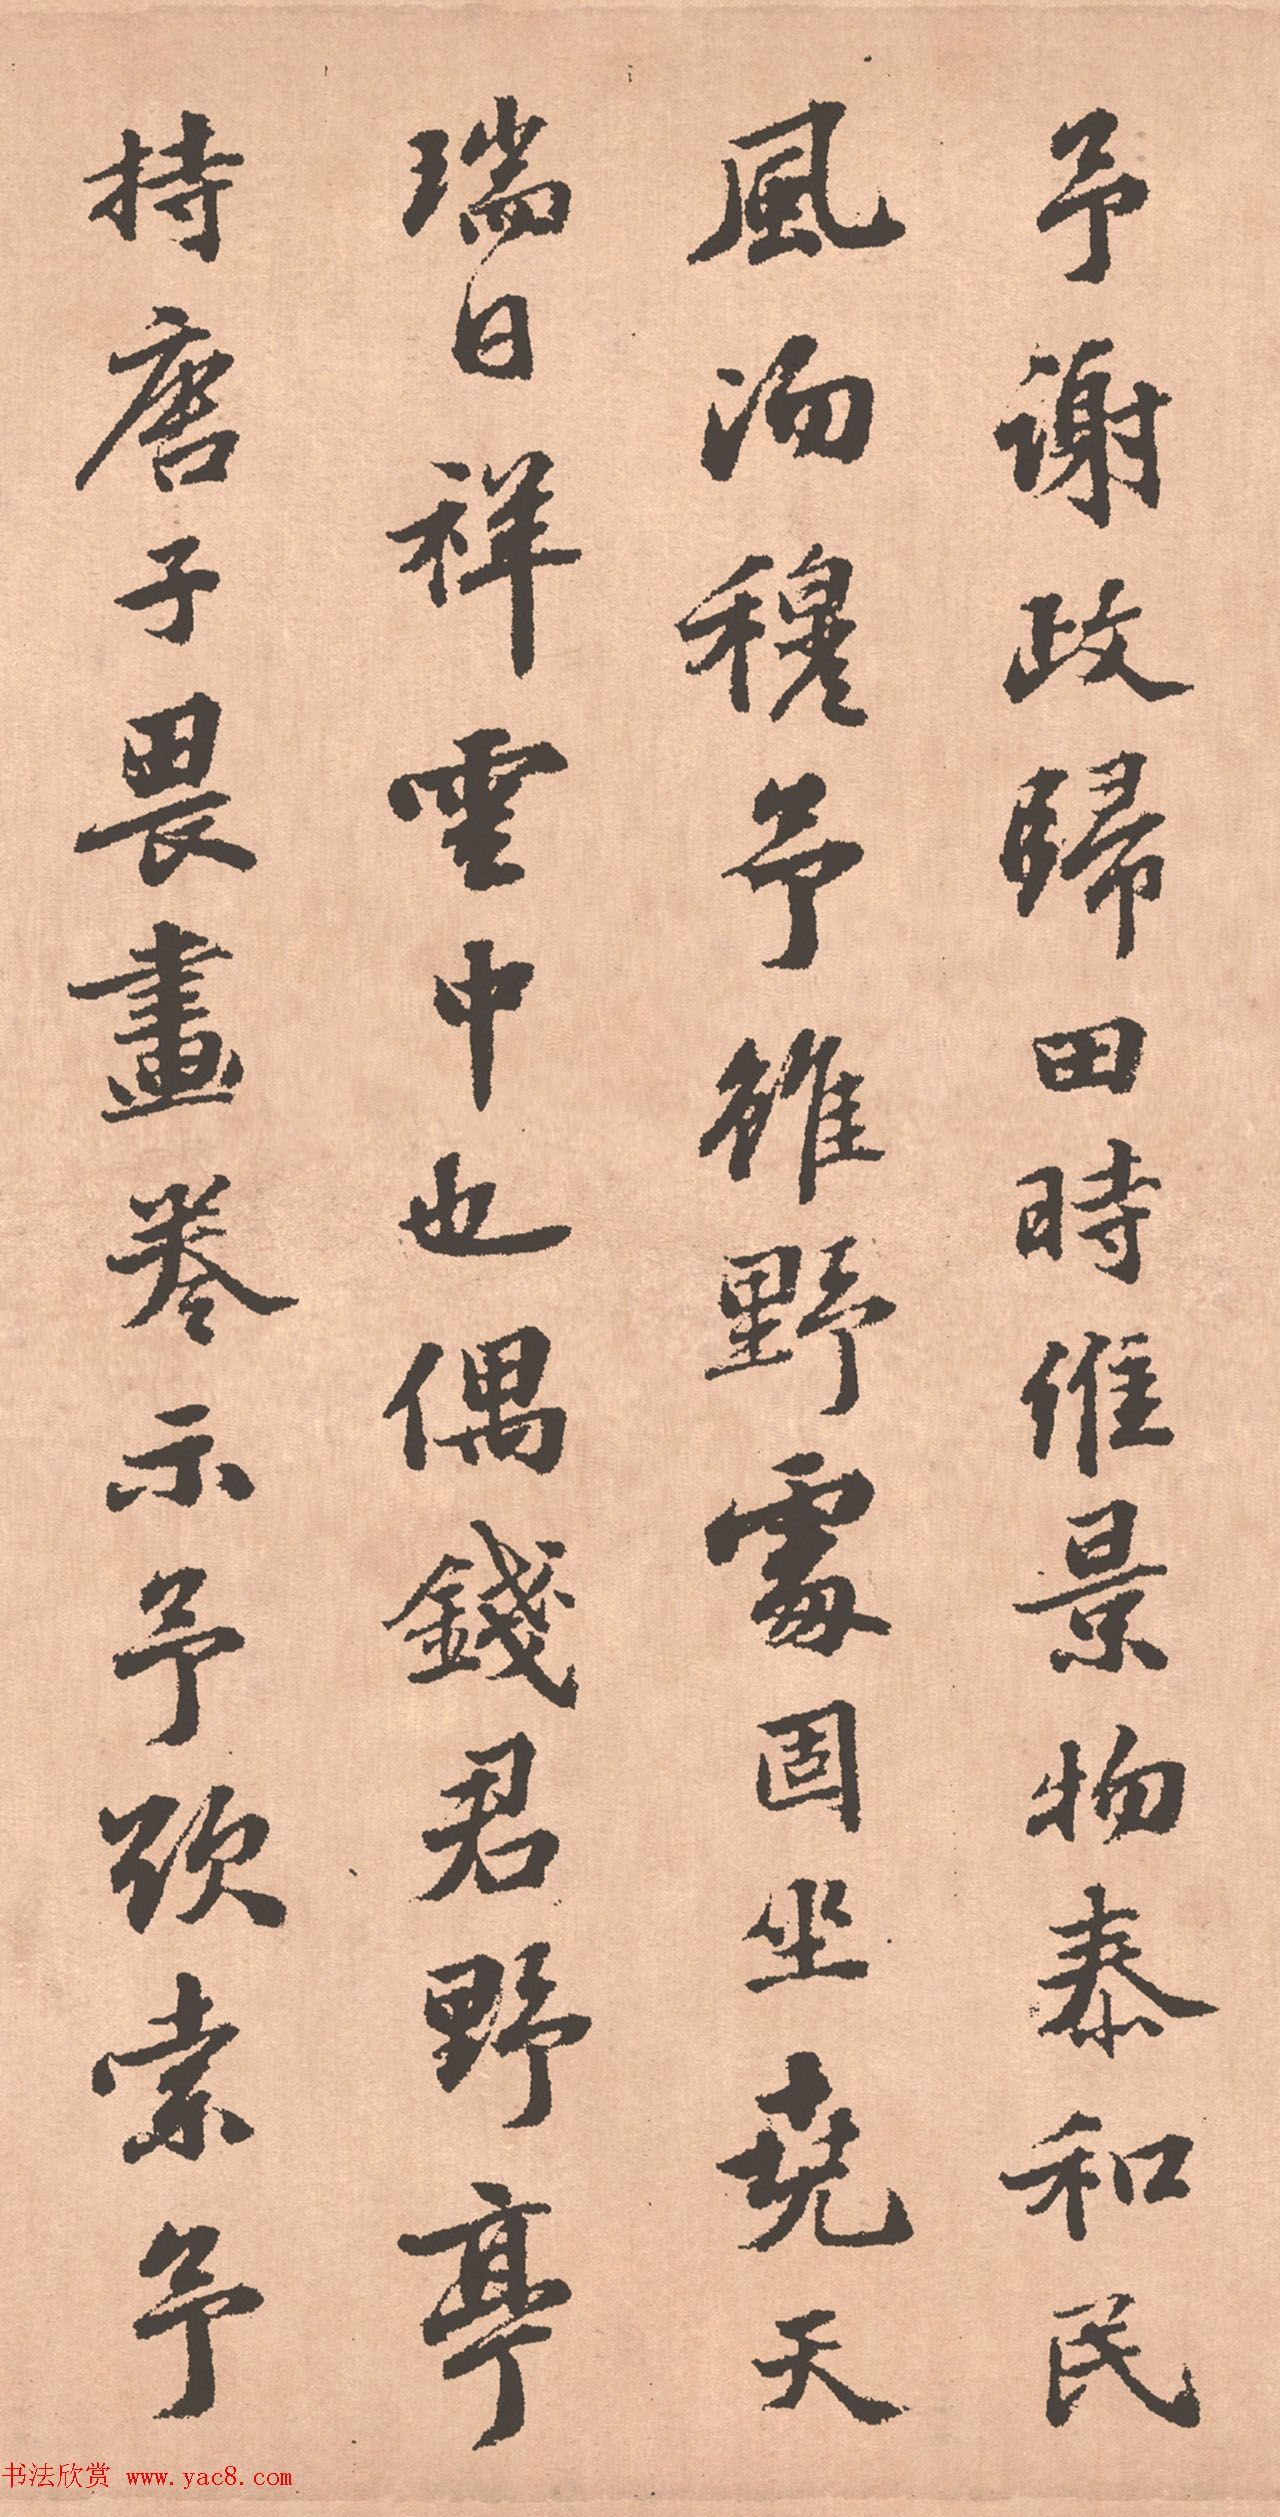 予謝政歸田時維景物泰和民
風沕穆予雖野處固坐堯天
瑞日祥雲中也偶錢君野亭
持唐子畏畫卷示予欣索予
书法欣赏 www.yac8.com